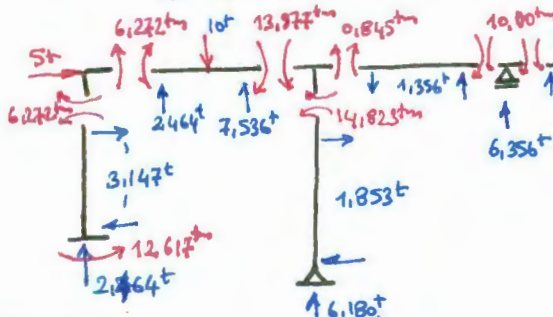 6,272tm 10t 13,977tm 0,845tm 10,00tm
5t
6,272tm 2,464t 7,536t 14,823tm 1,356t 6,356t
3,147t 1,853t
12,617tm
2,464t 6,180t